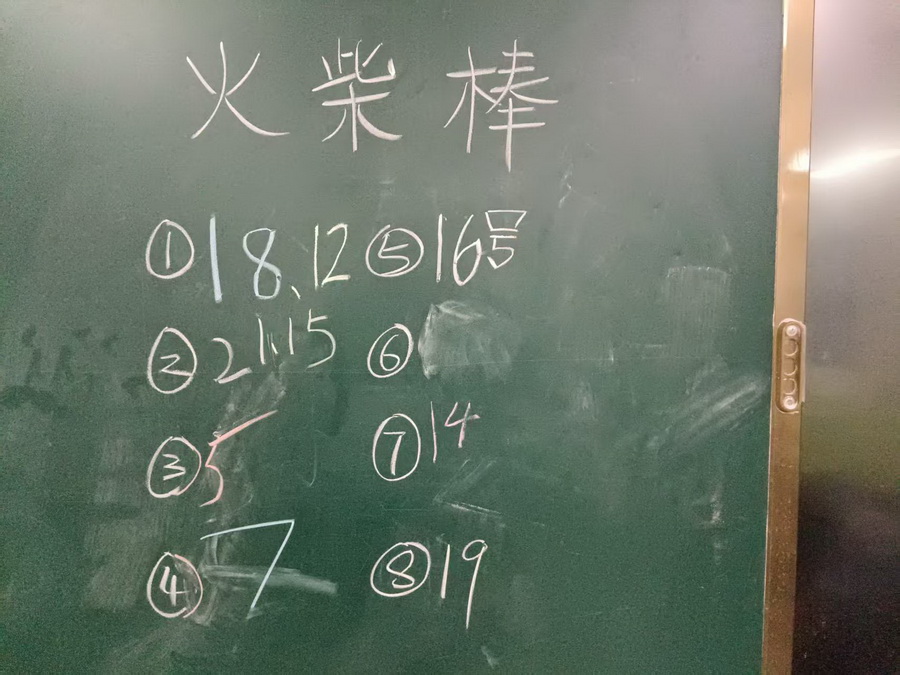 火柴棒
①18、12 ⑤16号
②21、15 ⑥
③5 ⑦14
④7 ⑧19